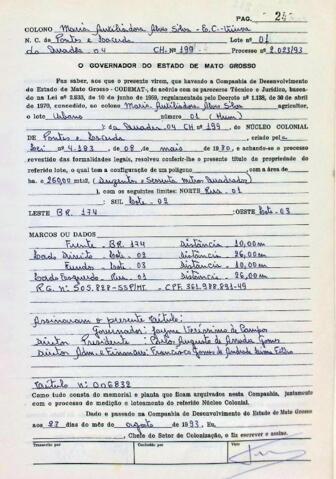 PAG. 24
COLONO Maria Auxiliadora Alves Silva - E.C.-Viúva
N. C. de Pontes e Lacerda Lote nº 01
da Quadra - 04 CH. Nº 199 - Processo nº 2.023/93
O GOVERNADOR DO ESTADO DE MATO GROSSO
Faz saber, aos que o presente virem, que havendo a Companhia de Desenvolvimento
do Estado de Mato Grosso - CODEMAT-, de acôrdo com os pareceres Técnico e Jurídico, basea-
do na Lei nº 2.933, de 10 de junho de 1969, regulamentado pelo Decreto nº 1.138, de 30 de abril
de 1970, concedido, ao colono Maria Auxiliadora Alves Silva agricultor,
o lote Urbano número 01 (Hum)
da Quadra 04 CH nº 199, do NÚCLEO COLONIAL
DE Pontes e Lacerda, criado pela
Lei nº 4.183, de 08, de maio de 1970, e achando-se o processo
revestido das formalidades legais, resolveu conferir-lhe o presente título de propriedade do
referido lote, o qual tem a configuração de um polígono com a área de
ha. 260,00 mts2, (Duzentos e Sessenta Metros Quadrados)
, com os seguintes limites: NORTE Rua - 01
: SUL Lote - 02
LESTE BR. 174 : OESTE Lote - 03
MARCOS OU DADOS
Frente - BR. 174 Distância - 10,00m
Lado Direito - Lote - 02 Distância - 26,00m
Fundos - Lote - 03 Distância - 10,00m
Lado Esquerdo - Rua - 01 Distância - 26,00m
R.G. Nº 505.828-SSP/MT. - CPF. 361.988.891-49
Assinaram o presente título:
Governador: Jayme Veríssimo de Campos
Diretor Presidente: Paulo Augusto de Arruda Gomes
Diretor Adm. e Financeiro: Francisco Gomes de Andrade Lima Filho
Título nº 006832
Como tudo consta do memorial e planta que ficam arquivados nesta Companhia, juntamente
com o processo de medição e loteamento do referido Núcleo Colonial.
Dado e passado na Companhia de Desenvolvimento do Estado de Mato Grosso
aos 23 dias do mês de agosto de 1993, Eu,
, Chefe do Setor de Colonização, o fiz escrever e assino.
Transcrito por Conferido por Visto